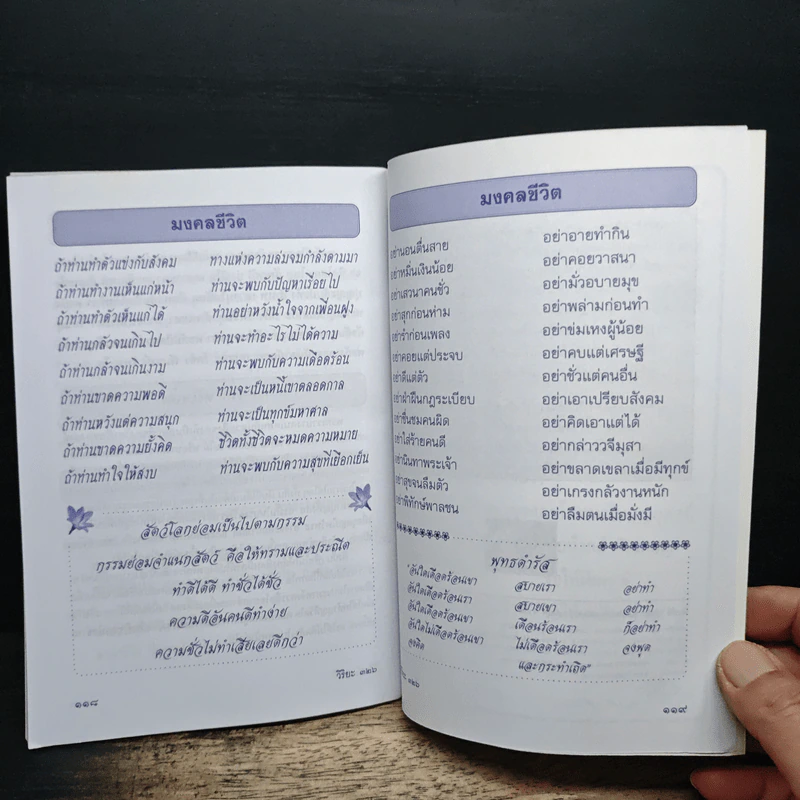 มงคลชีวิต
ถ้าท่านทำตัวแข่งกับสังคม ทางแห่งความล่มจมกำลังตามมา
ถ้าท่านทำงานเห็นแก่หน้า ท่านจะพบกับปัญหาเรื่อยไป
ถ้าท่านทำตัวเห็นแก่ได้ ท่านอย่าหวังน้ำใจจากเพื่อนฝูง
ถ้าท่านกลัวจนเกินไป ท่านจะทำอะไรไม่ได้ความ
ถ้าท่านกล้าจนเกินงาม ท่านจะพบกับความเดือดร้อน
ถ้าท่านขาดความพอดี ท่านจะเป็นหนี้ขาดลอดกาล
ถ้าท่านหวังแต่ความสนุก ท่านจะเป็นทุกข์มหาศาล
ถ้าท่านขาดความยั้งคิด ชีวิตทั้งชีวิตจะหมดความหมาย
ถ้าท่านทำใจให้สงบ ท่านจะพบกับความสุขที่เยือกเย็น
สัตว์โลกย่อมเป็นไปตามกรรม
กรรมย่อมจำแนกสัตว์ คือให้ทรามและประณีต
ทำดีได้ดี ทำชั่วได้ชั่ว
ความดีอันคนดีทำง่าย
ความชั่วไม่ทำเสียเลยดีกว่า
วิริยะ ๓๒๖
๑๑๘
มงคลชีวิต
อย่านอนตื่นสาย อย่าอายทำกิน
อย่าหมิ่นเงินน้อย อย่าคอยวาสนา
อย่าเสวนาคนชั่ว อย่ามั่วอบายมุข
อย่าสุกก่อนห่าม อย่าพล่ามก่อนทำ
อย่ารำก่อนเพลง อย่าข่มเหงผู้น้อย
อย่าคอยแต่ประจบ อย่าคบแต่เศรษฐี
อย่าดีแต่ตัว อย่าชั่วแต่คนอื่น
อย่าฝ่าฝืนกฎระเบียบ อย่าเอาเปรียบสังคม
อย่าชื่นชมคนผิด อย่าคิดเอาแต่ได้
อย่าใส่ร้ายคนดี อย่ากล่าววจีมุสา
อย่านินทาพระเจ้า อย่าขลาดเขลาเมื่อมีทุกข์
อย่าสุขจนลืมตัว อย่าเกรงกลัวงานหนัก
อย่าพิทักษ์พาลชน อย่าลืมตนเมื่อมั่งมี
พุทธดำรัส
"อันใดเดือดร้อนเขา สบายเรา อย่าทำ
อันใดเดือดร้อนเรา สบายเขา อย่าทำ
อันใดเดือดร้อนเขา เดือนร้อนเรา ก็อย่าทำ
อันใดไม่เดือดร้อนเขา ไม่เดือดร้อนเรา จงพูด
จงคิด และกระทำเถิด"
๓๒๖
๑๑๙